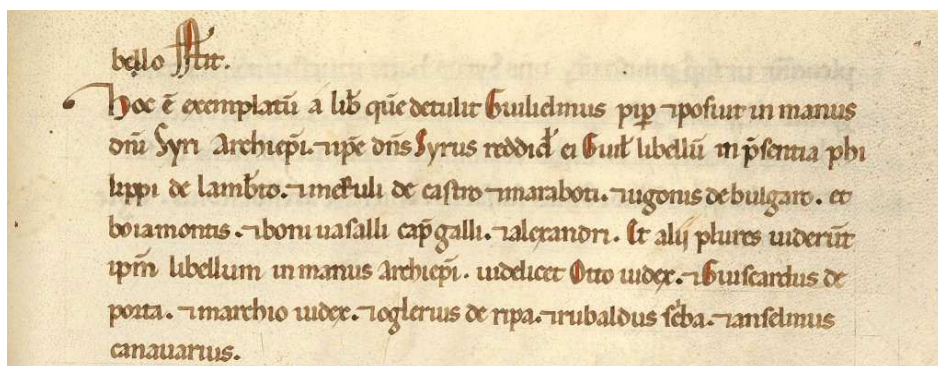 bello Stit.
hoc ē exemplatū a lib̄ quē detulit Guilielmus pip̱ ⁊posuit in manus
dn̄i Syri Archiep̄i.⁊ip̄e dn̄s Syrus reddid̄ ei Guił libellū in p̄sentia phi
lippi de lamb̄to.⁊meruli de castro ⁊maraboti.⁊ugonis de bulgaro. et
boiamontis.⁊boni uasalli cap̄galli.⁊alexandri. Et alij plures uider̄ut
ip̄m libellum in manus Archiep̄i. uidelicet Otto iudex.⁊Guiscardus de
porta.⁊marchio iudex.⁊oglerius de ripa.⁊rubaldus sc̄ba.⁊anselmus
canauarius.